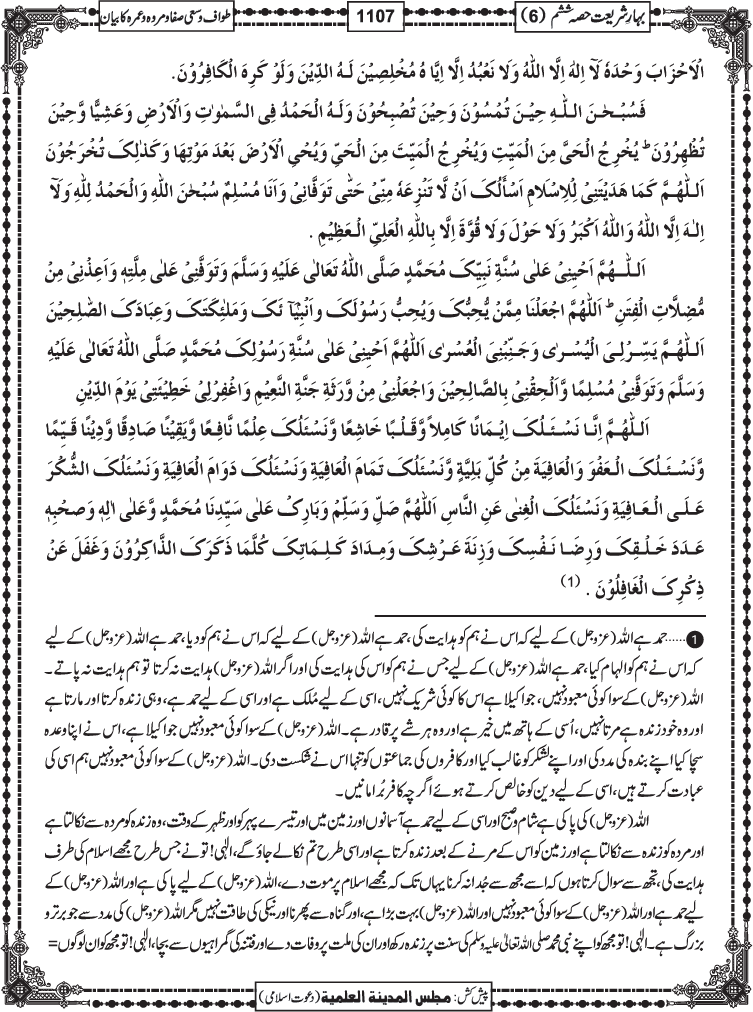 بہارِشریعت حصہ ششم (6)
1107
طواف وسعی صفا و مروہ و عمرہ کا بیان
الْاَحْزَابَ وَحْدَہٗ لَآ اِلٰہَ اِلَّا اللّٰہُ وَلَا نَعْبُدُ اِلَّا اِیَّا ہُ مُخْلِصِیْنَ لَـہُ الدِّیْنَ وَلَوْ کَرِہَ الْکَافِرُوْنَ.
فَسُبْحٰـنَ الـلّٰـہِ حِیْـنَ تُمْسُوْنَ وَحِیْنَ تُصْبِحُوْنَ وَلَـہُ الْحَمْدُ فِی السَّمٰوٰتِ وَالْاَرْضِ وَعَشِیًّا وَّحِیْنَ
تُظْھِرُوْنَ ؕ یُخْرِجُ الْحَیَّ مِنَ الْمَیِّتِ وَیُخْرِجُ الْمَیِّتَ مِنَ الْحَیِّ وَیُحْیِ الْاَرْضَ بَعْدَ مَوْتِھَا وَکَذٰلِکَ تُخْرَجُوْنَ
اَللّٰھُـمَّ کَمَا ھَدَیْتَنِیْ لِلْاِسْلَامِ اَسْأَلُکَ اَنْ لَّا تَنْزِعَہٗ مِنِّیْ حَتّٰی تَوَفَّانِیْ وَاَنَا مُسْلِمٌ سُبْحٰنَ اللّٰہِ وَالْحَمْدُ لِلّٰہِ وَلَآ
اِلٰـہَ اِلَّا اللّٰہُ وَاللّٰہُ اَکْبَرُ وَلَا حَوْلَ وَلَا قُوَّۃَ اِلَّا بِاللّٰہِ الْعَلِیِّ الْعَظِیْمِ .
اَللّٰـھُمَّ اَحْیِنِیْ عَلٰی سُنَّۃِ نَبِیِّکَ مُحَمَّدٍ صَلَّی اللّٰہُ تَعَالٰی عَلَیْہِ وَسَلَّمَ وَتَوَفَّنِیْ عَلٰی مِلَّتِہٖ وَاَعِذْنِیْ مِنْ
مُّضِلَّاتِ الْفِتَنِ ؕ اَللّٰھُمَّ اجْعَلْنَا مِمَّنْ یُّحِبُّکَ وَیُحِبُّ رَسُوْلَکَ وَاَنْبِیَآ ئَکَ وَمَلٰئِکَتَکَ وَعِبَادَکَ الصّٰلِحِیْنَ
اَللّٰھُـمَّ یَسِّـرْلِـیَ الْیُسْـرٰی وَجَنِّبْنِیَ الْعُسْرٰی اَللّٰھُمَّ اَحْیِنِیْ عَلٰی سُنَّۃِ رَسُوْلِکَ مُحَمَّدٍ صَلَّی اللّٰہُ تَعَالٰی عَلَیْہِ
وَسَلَّمَ وَتَوَفَّنِیْ مُسْلِمًا وَّاَلْحِقْنِیْ بِالصَّالِحِیْنَ وَاجْعَلْنِیْ مِنْ وَّرَثَۃِ جَنَّۃِ النَّعِیْمِ وَاغْفِرْلِیْ خَطِیْئَتِیْ یَوْمَ الدِّیْنِ
اَللّٰھُـمَّ اِنَّـا نَسْـئَـلُکَ اِیْـمَانًا کَامِلاً وَّقَلْـبًا خَاشِعًا وَّنَسْئَلُکَ عِلْمًا نَّافِعًا وَّیَقِیْنًا صَادِقًا وَّدِیْنًا قَیِّمًا
وَّنَسْئَـلُکَ الْعَفْوَ وَالْعَافِیَۃَ مِنْ کُلِّ بَلِیَّۃٍ وَّنَسْئَلُکَ تَمَامَ الْعَافِیَۃِ وَنَسْئَلُکَ دَوَامَ الْعَافِیَۃِ وَنَسْئَلُکَ الشُّکْرَ
عَلَـی الْعَـافِیَۃِ وَنَسْئَلُکَ الْغِنٰی عَنِ النَّاسِ اَللّٰھُمَّ صَلِّ وَسَلِّمْ وَبَارِکْ عَلٰی سَیِّدِنَا مُحَمَّدٍ وَّعَلٰی اٰلِہٖ وَصَحْبِہٖ
عَدَدَ خَلْـقِکَ وَرِضَـا نَـفْسِکَ وَزِنَۃَ عَـرْشِکَ وَمِدَادَ کَـلِـمَاتِکَ کُلَّمَا ذَکَرَکَ الذَّاکِرُوْنَ وَغَفَلَ عَنْ
ذِکْرِکَ الْغَافِلُوْنَ . (1)
1 ......حمد ہے اللہ (عزوجل) کے لیے کہ اس نے ہم کو ہدایت کی، حمد ہے اللہ (عزوجل) کے لیے کہ اس نے ہم کو دیا، حمد ہے اللہ (عزوجل) کے لیے
کہ اس نے ہم کو الہام کیا، حمد ہے اللہ (عزوجل) کے لیے جس نے ہم کو اس کی ہدایت کی اور اگر اللہ (عزوجل) ہدایت نہ کرتا تو ہم ہدایت نہ پاتے۔
اللہ (عزوجل) کے سوا کوئی معبود نہیں، جو اکیلا ہے اس کا کوئی شریک نہیں، اسی کے لیے مُلک ہے اور اسی کے لیے حمد ہے، وہی زندہ کرتا اور مارتا ہے
اور وہ خود زندہ ہے مرتا نہیں، اُسی کے ہاتھ میں خیر ہے اور وہ ہر شے پر قادر ہے۔ اللہ (عزوجل) کے سوا کوئی معبود نہیں جو اکیلا ہے، اس نے اپنا وعدہ
سچا کیا اپنے بندہ کی مدد کی اور اپنے لشکر کو غالب کیا اور کافروں کی جماعتوں کو تنہا اس نے شکست دی۔ اللہ (عزوجل) کے سوا کوئی معبود نہیں ہم اسی کی
عبادت کرتے ہیں، اسی کے لیے دین کو خالص کرتے ہوئے اگرچہ کافر بُرا مانیں۔
اللہ (عزوجل) کی پاکی ہے شام و صبح اور اسی کے لیے حمد ہے آسمانوں اور زمین میں اور تیسرے پہر کو اور ظہر کے وقت، وہ زندہ کو مردہ سے نکالتا ہے
اور مردہ کو زندہ سے نکالتا ہے اور زمین کو اس کے مرنے کے بعد زندہ کرتا ہے اور اسی طرح تم نکالے جاؤ گے، الٰہی! تو نے جس طرح مجھے اسلام کی طرف
ہدایت کی، تجھ سے سوال کرتا ہوں کہ اسے مجھ سے جُدا نہ کرنا یہاں تک کہ مجھے اسلام پر موت دے، اللہ (عزوجل) کے لیے پاکی ہے اور اللہ (عزوجل) کے
لیے حمد ہے اور اللہ (عزوجل) کے سوا کوئی معبود نہیں اور اللہ (عزوجل) بہت بڑا ہے، اور گناہ سے پھرنا اور نیکی کی طاقت نہیں مگر اللہ (عزوجل) کی مدد سے جو برتر و
بزرگ ہے۔ الٰہی! تو مجھ کو اپنے نبی محمد صلی اللہ تعالیٰ علیہ وسلم کی سنت پر زندہ رکھ اور ان کی ملت پر وفات دے اور فتنہ کی گمراہیوں سے بچا، الٰہی! تو مجھ کو ان لوگوں=
پیش کش: مجلس المدینة العلمیة (دعوت اسلامی)